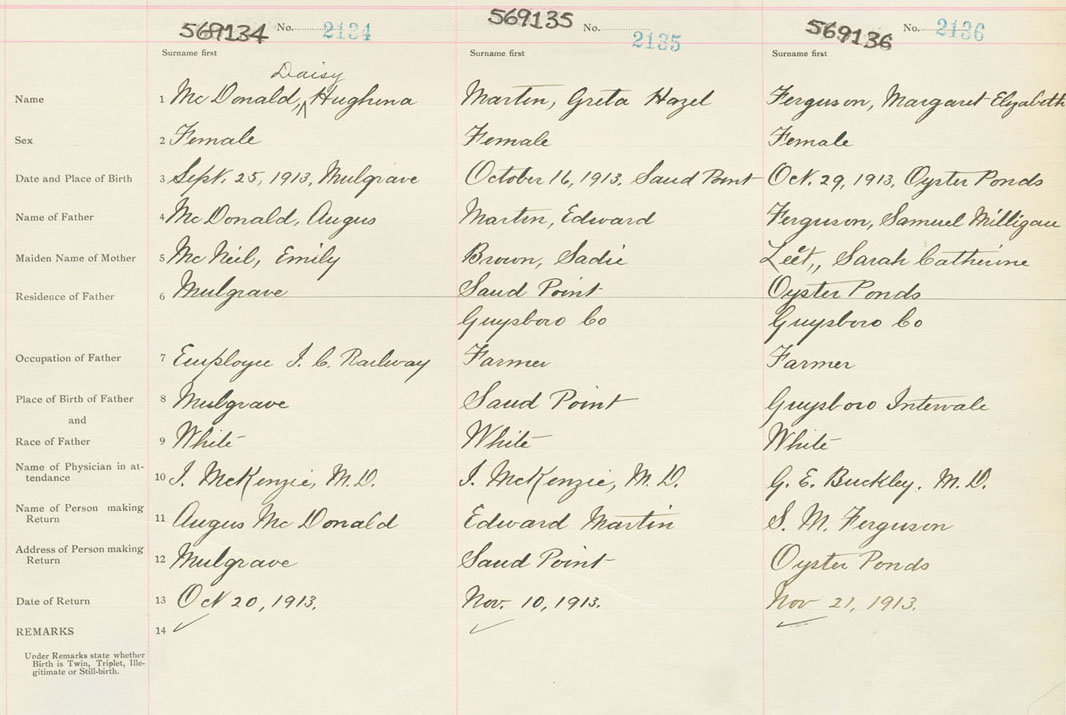 569134 No. 2134 569135 No. 2135 569136 No. 2136
Surname first Surname first Surname first
Daisy
Name 1 McDonald, ^ Hughena Martin, Greta Hazel Ferguson, Margaret Elizabeth
Sex 2 Female Female Female
Date and Place of Birth 3 Sept. 25, 1913, Mulgrave October 16, 1913. Sand Point Oct. 29, 1913, Oyster Ponds
Name of Father 4 McDonald, Angus Martin, Edward Ferguson, Samuel Milligan
Maiden Name of Mother 5 McNeil, Emily Brown, Sadie Leet,, Sarah Catherine
Residence of Father 6 Mulgrave Sand Point Oyster Ponds
Guysboro Co Guysboro Co
Occupation of Father 7 Employee I. C. Railway Farmer Farmer
Place of Birth of Father 8 Mulgrave Sand Point Guysboro Intervale
and
Race of Father 9 White White White
Name of Physician in at-
tendance 10 J. McKenzie, M.D. J. McKenzie, M.D. G. E. Buckley. M.D.
Name of Person making
Return 11 Angus McDonald Edward Martin S. M. Ferguson
Address of Person making
Return 12 Mulgrave Sand Point Oyster Ponds
Date of Return 13 Oct 20, 1913. Nov. 10, 1913. Nov 21, 1913.
REMARKS 14 ✓ ✓ ✓
Under Remarks state whether
Birth is Twin, Triplet, Ille-
gitimate or Still-birth.